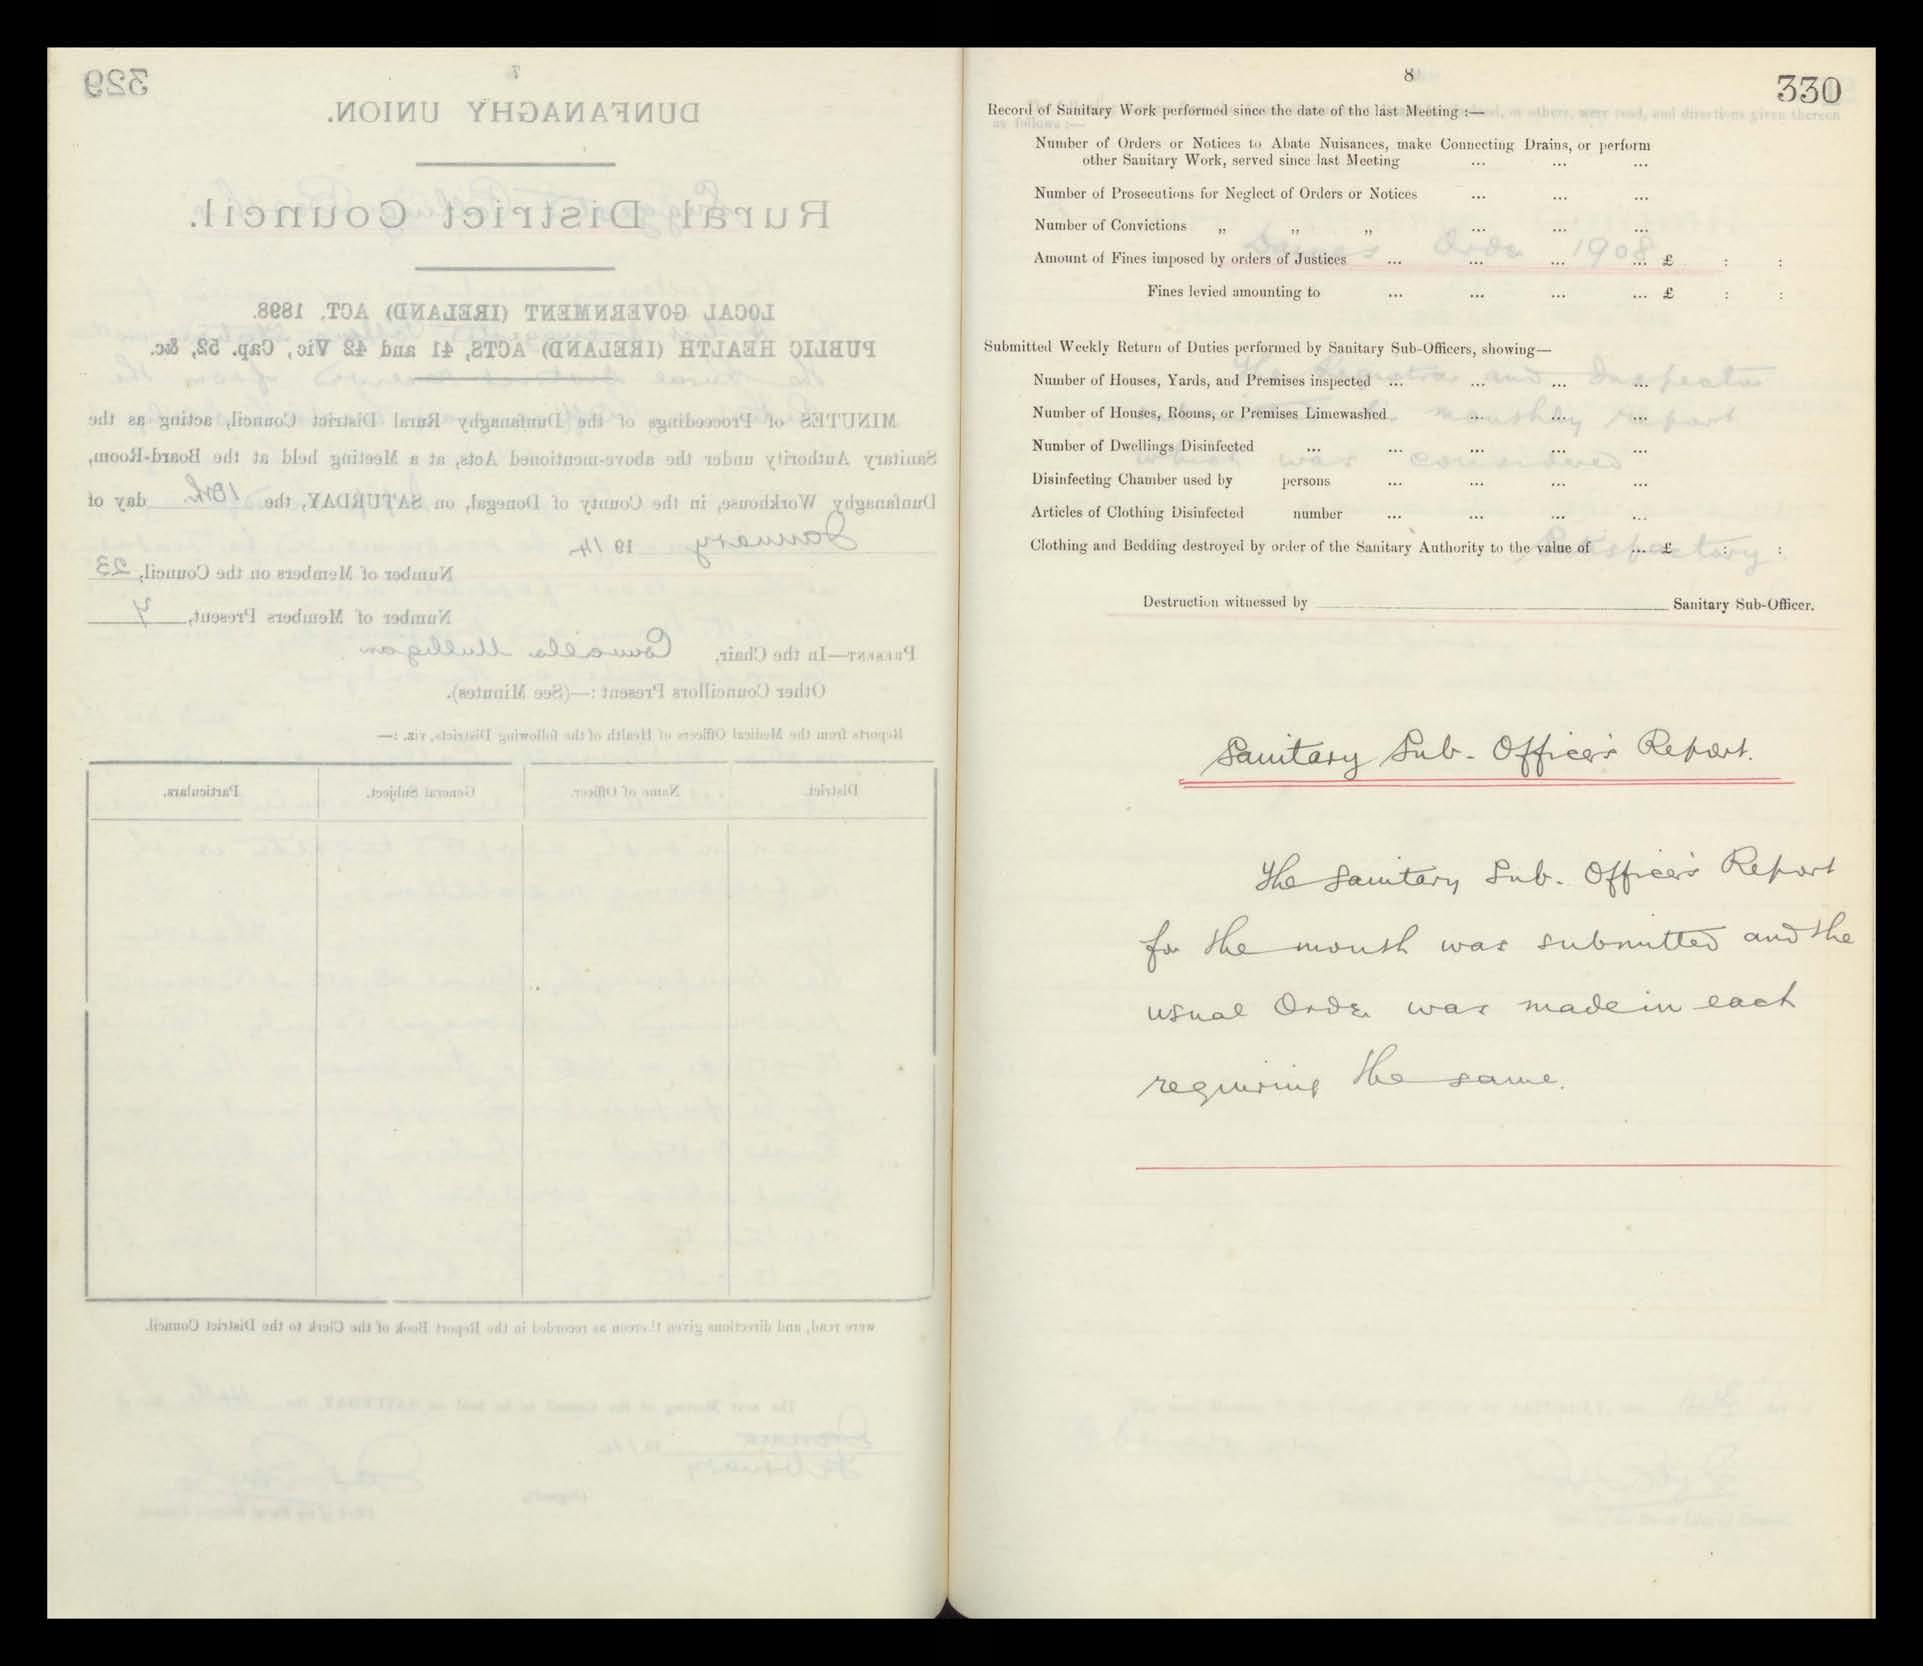 329
7
DUNFANAGHY UNION.
Rural District Council.
LOCAL GOVERNMENT (IRELAND) ACT, 1898.
PUBLIC HEALTH (IRELAND) ACTS, 41 and 42 Vic, Cap. 52, &c.
MINUTES of Proceedings of the Dunfanaghy Rural District Council, acting as the
Sanitary Authority under the above-mentioned Acts, at a Meeting held at the Board-Room,
Dunfanaghy Workhouse, in the County of Donegal, on SATURDAY, the 10th. day of
January 1914
Number of Members on the Council, 23
Number of Members Present, 7
PRESENT—In the Chair, Connolls Mulligan
Other Councillors Present :—(See Minutes).
Reports from the Medical Officers of Health of the following Districts, viz. :—
District. Name of Officer. General Subject. Particulars.
were read, and directions given thereon as recorded in the Report Book of the Clerk to the District Council.
8
330
Record of Sanitary Work performed since the date of the last Meeting :—
Number of Orders or Notices to Abate Nuisances, make Connecting Drains, or perform
other Sanitary Work, served since last Meeting ... ... ...
Number of Prosecutions for Neglect of Orders or Notices ... ... ...
Number of Convictions „ „ „ ... ... ...
Amount of Fines imposed by orders of Justices ... ... ... ... £ : :
Fines levied amounting to ... ... ... ... £ : :
Submitted Weekly Return of Duties performed by Sanitary Sub-Officers, showing—
Number of Houses, Yards, and Premises inspected ... ... ... ...
Number of Houses, Rooms, or Premises Limewashed ... ... ...
Number of Dwellings Disinfected ... ... ... ... ...
Disinfecting Chamber used by persons ... ... ... ...
Articles of Clothing Disinfected number ... ... ... ...
Clothing and Bedding destroyed by order of the Sanitary Authority to the value of ... £ : :
Destruction witnessed by Sanitary Sub-Officer.
Sanitary Sub-Officer's Report.
The Sanitary Sub-Officer's Report
for the month was submitted and the
usual Order was made in each
requiring the same.